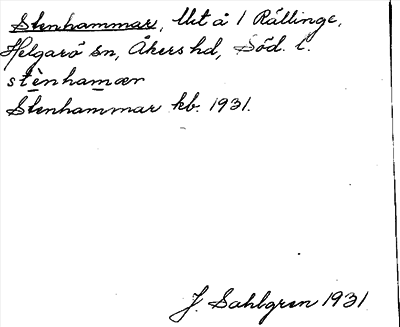 Stenhammar, lht å 1 Rällinge,
Helgarö sn, Åkers hd, Söd. l.
stènhamær
Stenhammar kb. 1931.
J. Sahlgren 1931